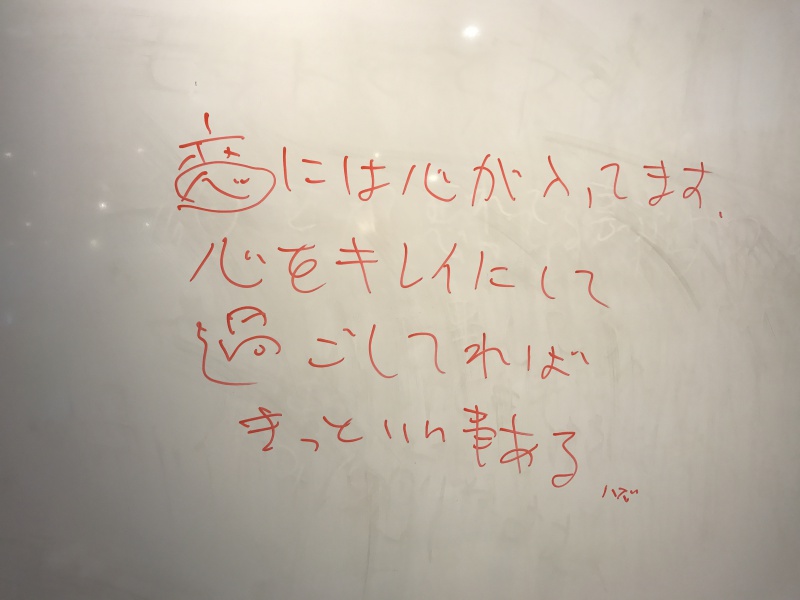 恋には心が入ってます.
心をキレイにして
過ごしてれば
きっといい事ある
ハズ